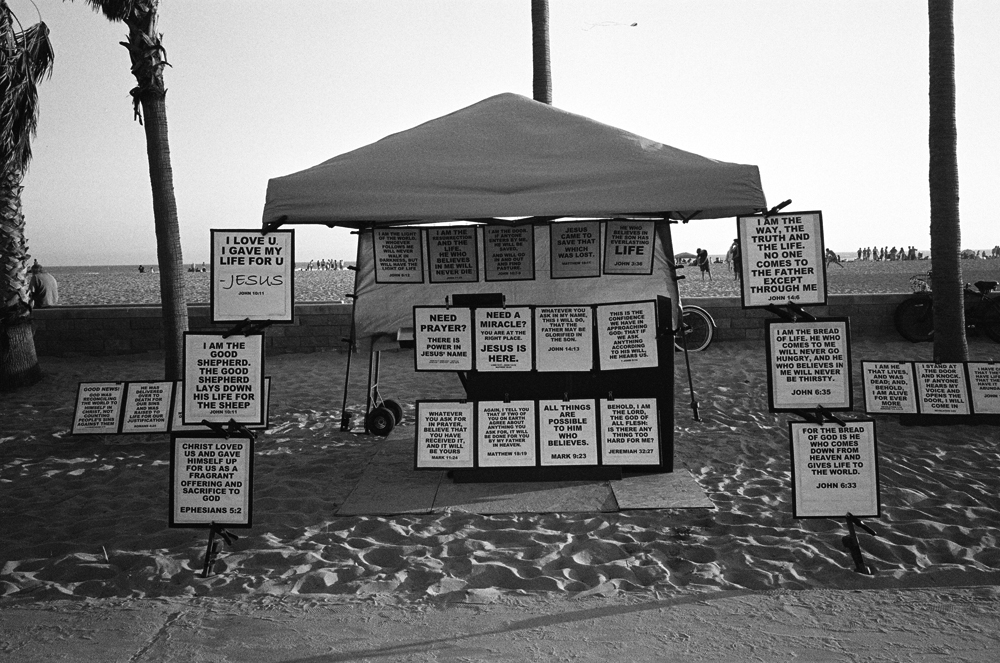 I LOVE U.
I GAVE MY
LIFE FOR U
-JESUS
JOHN 10:11
I AM THE
GOOD
SHEPHERD.
THE GOOD
SHEPHERD
LAYS DOWN
HIS LIFE FOR
THE SHEEP
JOHN 10:11
CHRIST LOVED
US AND GAVE
HIMSELF UP
FOR US AS A
FRAGRANT
OFFERING AND
SACRIFICE TO
GOD
EPHESIANS 5:2
GOOD NEWS!
GOD WAS
RECONCILING
THE WORLD TO
HIMSELF IN
CHRIST, NOT
COUNTING
SINS
AGAINST THEM
HE WAS
DELIVERED
OVER TO
DEATH FOR
OUR SINS
AND WAS
RAISED FOR
OUR
JUSTIFICATION
I AM THE LIGHT
OF THE WORLD.
WHOEVER
FOLLOWS ME
WILL NEVER
WALK IN
DARKNESS, BUT
WILL HAVE THE
LIGHT OF LIFE
JOHN 8:12
I AM THE
RESURRECTION
AND THE LIFE.
HE WHO
BELIEVES
IN ME WILL
NEVER DIE
I AM THE DOOR.
IF ANYONE
ENTERS BY ME,
HE WILL BE
SAVED,
AND WILL GO
IN AND OUT
AND FIND
PASTURE
JESUS
CAME TO
SAVE THAT
WHICH
WAS LOST.
MATTHEW 18:11
HE WHO
BELIEVES IN
THE SON HAS
EVERLASTING
LIFE
JOHN 3:36
NEED
PRAYER?
THERE IS
POWER IN
JESUS' NAME
NEED A
MIRACLE?
YOU ARE AT THE
RIGHT PLACE.
JESUS IS
HERE.
WHATEVER YOU
ASK IN MY NAME,
THIS I WILL DO,
THAT THE
FATHER MAY BE
GLORIFIED IN
THE SON.
JOHN 14:13
THIS IS THE
CONFIDENCE
WE HAVE IN
APPROACHING
GOD: THAT IF
WE ASK
ANYTHING
ACCORDING
TO HIS WILL,
HE HEARS US.
WHATEVER
YOU ASK FOR
IN PRAYER,
BELIEVE THAT
YOU HAVE
RECEIVED IT,
AND IT WILL
BE YOURS
MARK 11:24
AGAIN, I TELL YOU
THAT IF TWO OF
YOU ON EARTH
AGREE ABOUT
ANYTHING YOU
ASK FOR, IT WILL
BE DONE FOR YOU
BY MY FATHER
IN HEAVEN.
MATTHEW 18:19
ALL THINGS
ARE
POSSIBLE
TO HIM
WHO
BELIEVES.
MARK 9:23
BEHOLD, I AM
THE LORD,
THE GOD OF
ALL FLESH;
IS THERE ANY
THING TOO
HARD FOR ME?
JEREMIAH 32:27
I AM THE
WAY, THE
TRUTH AND
THE LIFE.
NO ONE
COMES TO
THE FATHER
EXCEPT
THROUGH ME
JOHN 14:6
I AM THE BREAD
OF LIFE. HE WHO
COMES TO ME
WILL NEVER GO
HUNGRY, AND HE
WHO BELIEVES IN
ME WILL NEVER
BE THIRSTY.
JOHN 6:35
FOR THE BREAD
OF GOD IS HE
WHO COMES
DOWN FROM
HEAVEN AND
GIVES LIFE TO
THE WORLD.
JOHN 6:33
I AM HE
THAT LIVES,
AND WAS
DEAD; AND,
BEHOLD,
I AM ALIVE
FOR EVER
MORE
I STAND AT
THE DOOR
AND KNOCK.
IF ANYONE
HEARS MY
VOICE AND
OPENS THE
DOOR, I WILL
COME IN